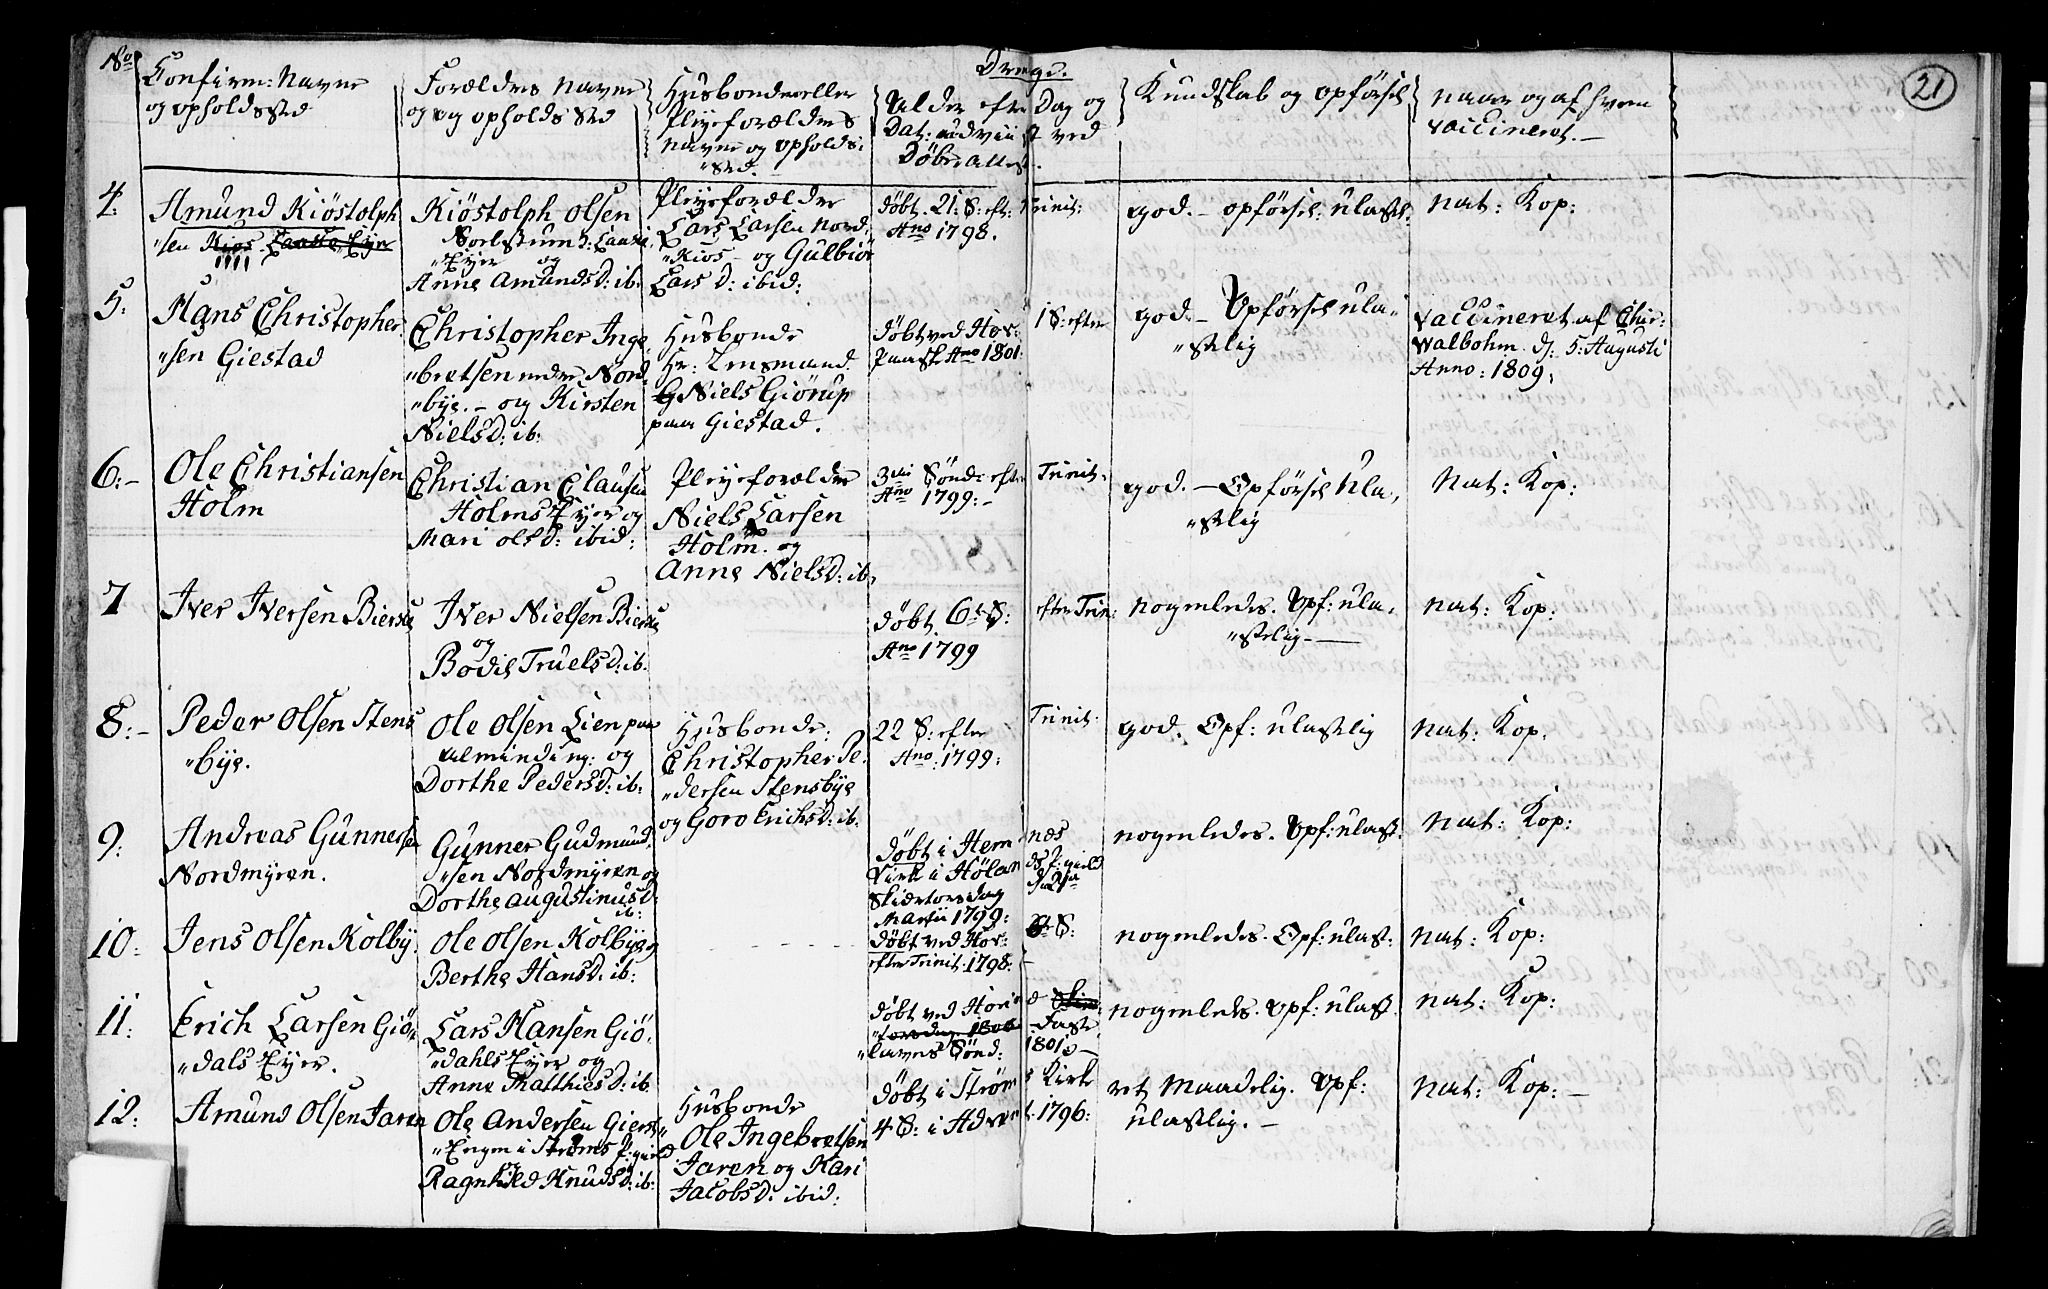 Drenge.
21
No
Confirm: Navne
og opholdssted
Forældres Navne
og og opholds sted
Husbonde eller
Pleyeforældres
Navne og opholds:
"sted.
Alder efter Dag og
Dat: udviist ved
Döbe attest.
Kundskab og opförsel
naar og af hvem
vaccineret. –
4:
Amund Kiöstolph
"sen Kios
Kiöstolph Olsen
Eyer og
Anne Amundsd: ib:
Pleyeforældre
Lars Larsen Nord,
"Kios – og Gulbiör
Lars D: ibid:
döbt. 21: S: eft: Trinit:
Ano 1798.
god. – opförsel: ulastl:
Nat: Kop:
5:
Hans Christopher
"sen Giestad
Christopher Inge
"bretsen nedre Nord
"bye. – og Kirsten
Niels D: ib:
Husbonde
Hr: Lensmand
G Niels Giörup
paa Giestad.
döbt ved Hov: 1 S: efter
Paask Ano 1801:
god. – Opförsel ula"
"stelig
vaccineret af Chir:
Walbohm d: 5: Augusti
Anno: 1809:
6: –
Ole Christiansen
Holm
Christian Clausen
Holms Eyer og
Mari Olsd: ibid:
Pleyeforældre
Niels Larsen
Holm. og
Anne Nielsd: ib,
3die Sönd: efter Trinit:
Ano 1799: –
god. – Opförsel Ula,
"stelig
Nat: Kop:
7
Iver Iversen
Iver Nielsen
og
Bodil Truelsd: ib.
döbt. 6: S: efter Trin:
Ano 1799
nogenledes. Opf: ula,
"stelig –
Nat: Kop:
8: –
Peder Olsen Stens
"bye.
Ole Olsen Lien paa
Alminding: og
Dorthe Pedersd: ib:
Husbonde:
Christopher Pe,
"dersen Stensbye
og Goro Erichsd: ib:
22 S: efter Trinit:
Ano: 1799:
god. Opf: ulastelig
Nat: Kop:
9:
Andreas Gunnersen
Nordmyren.
Gunner Gudmund,
"sen Nordmyren og
Dorthe Augustinusd:
ib:
döbt i Hemnæs
Kirke i Höland P: gield
Skiertorsdag d: 21de
Martii 1799:
nogenledes. Opf: ulast.
Nat: Kop:
10:
Jens Olsen Kolby
Ole Olsen Kolbye og
Berthe Hansd: ib:
döbt ved Hov: S:
efter Trinit: 1798:
nogenledes. Opf: ulast:
Nat: Kop:
11:
Erich Larsen Giö"
"dals Eyer.
Lars Hansen Giö,
"dahls Eyer og
Anne Matthiesd: ib.
döbt ved Hov:
"torsdag 1800 Faste
"lavns Sönd: 1801: –
nogenleds. Opf: ulast.
Nat: Kop:
12:
Amund Olsen Jaren
Ole Andersen Gierst"
"Engen i Ströms P: gield
og
Ragnhild Knudsd: ib:
Husbonde
Ole Ingebretsen
Jaren og Kari
Jacobsd: ibid:
döbt i Ström: Kirke
4 S: i Advent. 1796:
ret Maadelig. Opf:
ulastlig. –
Nat: Kop: –